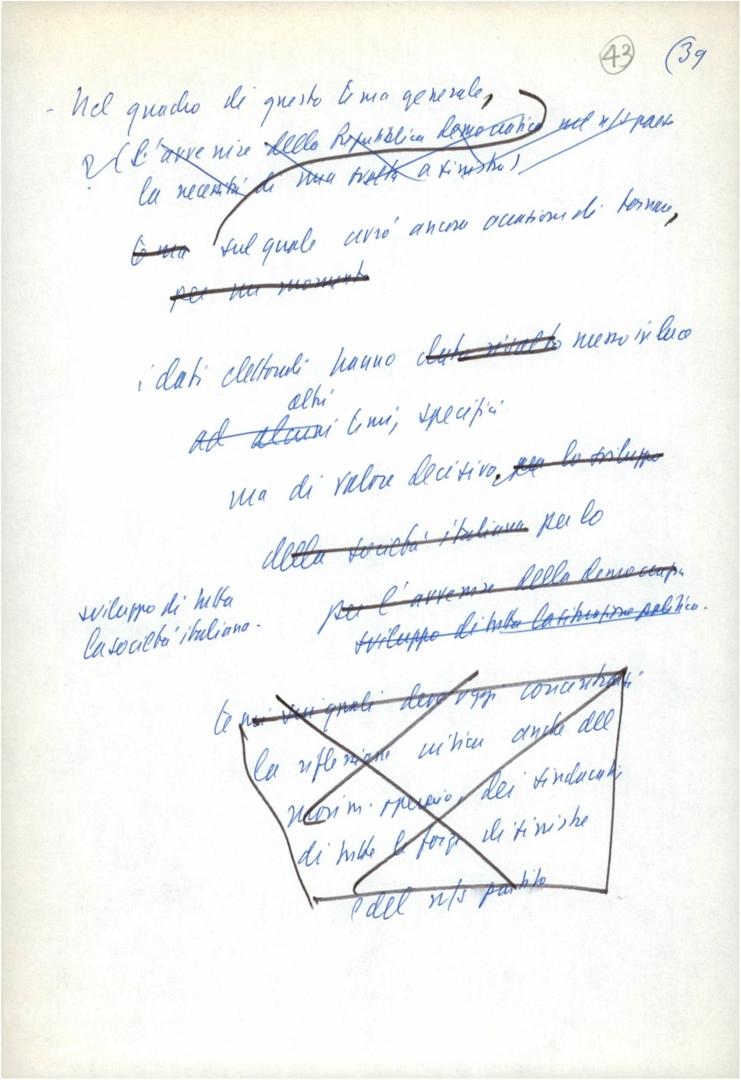 43 (39
- Nel quadro di questo tema generale,
(L'avvenire della Repubblica democratica nel n/s paese
la necessità di una svolta a sinistra)
tema sul quale avrò ancora occasione di tornare,
per un momento
i dati elettorali hanno dato risalto messo in luce
altri
ad alcuni temi, specifici
ma di valore decisivo, per lo sviluppo
della società italiana per lo
per l'avvenire della democrazia
sviluppo di tutta la situazione politica.
sviluppo di tutta
la società italiana.
temi sui quali deve oggi concentrarsi
la riflessione critica anche del
movim. operaio, dei sindacati,
di tutte le forze di sinistra
e del n/s partito